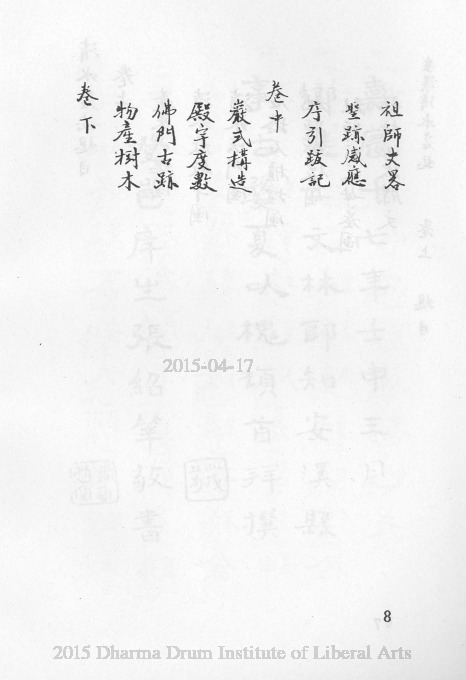 祖師大畧
聖跡感應
序引跋記
卷中
巖式構造
殿宇度數
佛門古跡
物產樹木
卷下
2015-04-17
8
2015 Dharma Drum Institute of Liberal Arts